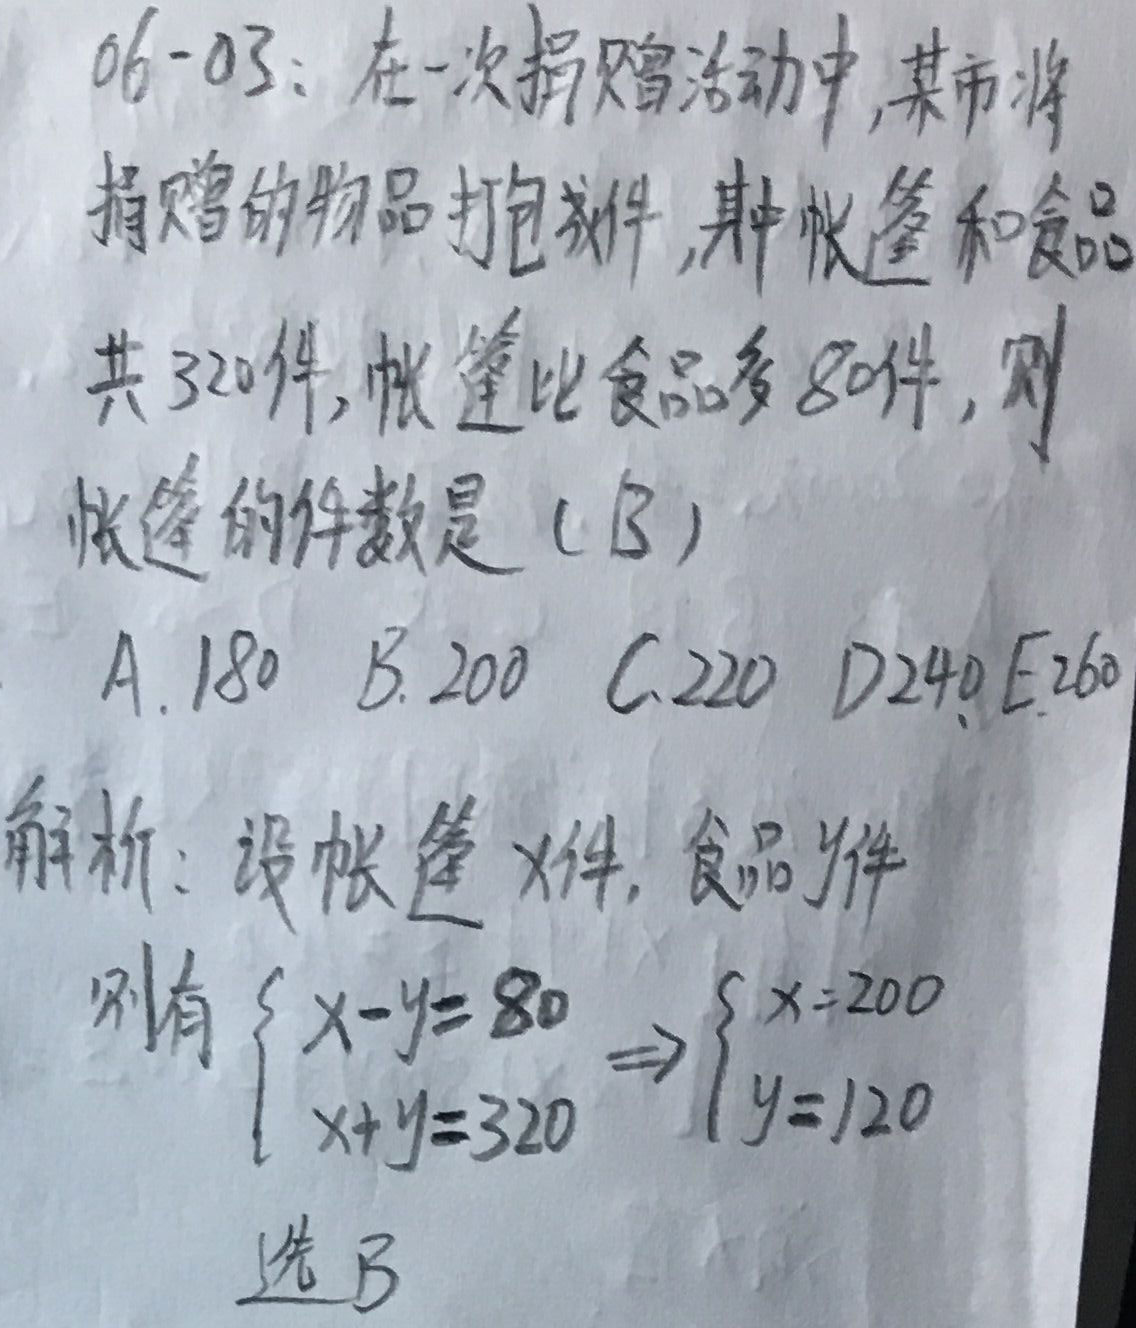 06-03: 在一次捐赠活动中,某市将
捐赠的物品打包成件,其中帐篷和食品
共320件,帐篷比食品多80件,则
帐篷的件数是(B)
A.180 B.200 C.220 D240. E.260
解析:设帐篷x件,食品y件
则有 { x-y=80 ⇒ { x=200
x+y=320 y=120
选B